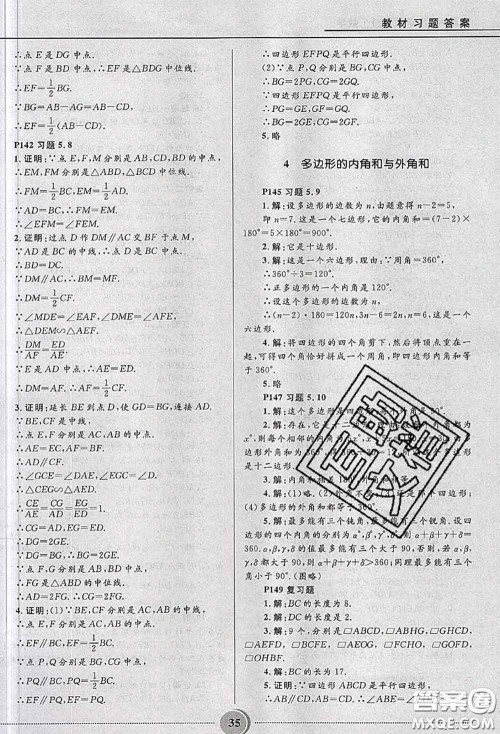 教材习题答案
∴点 E 是 DG 中点.
∵点 F 是 BD 中点, ∴EF 是△BDG 中位线.
∴EF=1/2BG.
∵BG=AB-AG=AB-CD,
∴EF=1/2(AB-CD).
P142 习题 5.8
1. 证明:∵点 E,M 分别是 AB,CD 中点,
∴FM 是△BCD 中位线, EM 是△ABD 中位线.
∴FM=1/2BC,EM=1/2AD.
∵AD=BC,∴EM=FM.
∴∠MEF=∠MFE.
2. 证明:过点 D 作 DM∥AC 交 BF 于 M,
∵AD 是 BC 的中线,∴点 D 是 BC 中点.
∵DM∥AC,∴BM=FM.
∴DM=1/2FC.
∵∠MDE=∠EAF,∠DEM=∠AEF,
∴△DEM∽△AEF.
∴DM/AF=DE/AE.
∵E 是 AD 中点,∴DM=AF.
∴AF=1/2FC.
3. 证明:延长 BE 到点 D,使 BG=GD,连接 AD.
∵BE,CF 是中线,
∴点 E,F 分别是 AC,AB 的中点.
∴AE=EC,FG∥AD.
∵∠GCE=∠DAE,∠EGC=∠EDA,
∴△CEG∽△AED.
∴CE/AE=CG/AD=EG/ED=1.
∴CG=AD,GE=ED.
∵BG=GD,∴BG=2GE.
∵点 F,G 分别是 AB,BD 的中点,
∴FG 是△ABD 中位线.
∴AD=2FG.∴CG=2FG.
4. 证明:(1)∵BE,CF 分别是 AC,AB 中线,
∴点 E,F 分别是 AC,AB 的中点,
∴EF∥BC,EF=1/2BC.
∵点 P,Q 分别是 BG,CG 中点,
∴PQ∥BC,PQ=1/2BC.
∴EF∥PQ,EF=PQ.
∴四边形 EFPQ 是平行四边形.
(2)∵点 P,Q 分别为 BG,CG 中点,
∴BG=2PG,CG=2GQ.
∵四边形 EFPQ 是平行四边形,
∴PG=GE,GF=GQ.
∴BG=2GE,CG=2GF.
5. 略
4 多边形的内角和与外角和
P145 习题 5.9
1. 解:设多边形的边数为 n,由题意得 n-2=5,
即 n=7.这是一个七边形,它的内角和为(7-2)×
180°=5×180°=900°.
2. 解:它是十边形.
3. 解:这是一个六边形,理由:∵周角=360°,
∴360°÷3=120°.
∴正多边形的一个内角是 120°.
∴设这个多边形的边数为 n,
∴(2-n)·180=120n,3n=2n-6,n=6.这是一个
六边形.
4. 解:将四边形的四个角剪下,然后将顶点重
合,可得四个角恰好拼成一个周角,即四边形内角和等
于 360°.
5. 略
P147 习题 5.10
1. 解:这个多边形的
每个内角
形是十二边形.
3. 解:
4. 解:(1)略
(4)多边形的外角和都等于
5. 解:最多能有三个钝角,最多能有三个锐角.设四
边形的四个内角的分别为 α,β,γ,δ,则 α+β+γ+δ=
360°,α,β,γ,δ 的值最多能有三个大于 90,否则 α,β,
γ,δ 都大于 90,那么 α+β+γ+δ>360°;同理最多能有三
个角小于 90°.(图略)
P149 复习题
1. 解:BC 的长度为 8.
2. 解:AD 的长度为 2.
3. 解:9 个,分别为▱ABCD,▱ABHG,▱GHCD,
▱AEFD,▱BCFE,▱AEOG,▱BEOH,▱GOFD,
▱OHBF.
4. 解:BC 的长为 17.
5. 证明:∵四边形 ABCD 是平行四边形,
∴AB∥CD,AB=CD.
35
答案圈
MXQE.COM